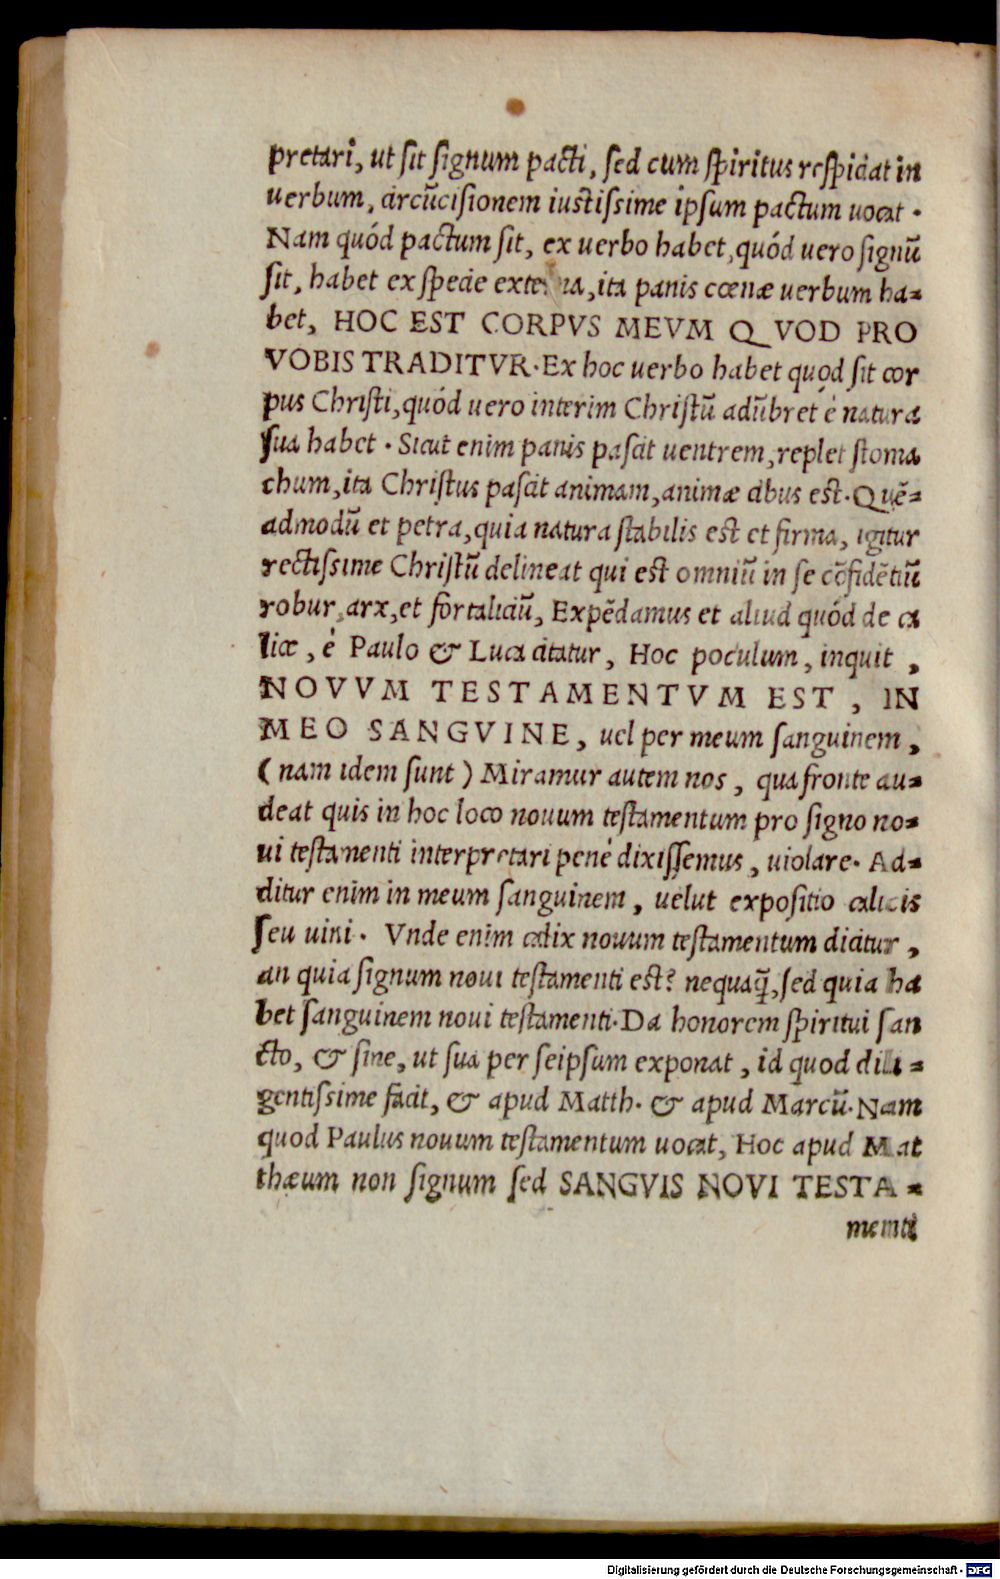 pretari, ut sit signum pacti, sed cum spiritus respiciat in
uerbum, circũcisionem iustissime ipsum pactum uocat.
Nam quód pactum sit, ex uerbo habet, quód uero signũ
sit, habet ex specie externa, ita panis cœnæ uerbum ha-
bet, HOC EST CORPVS MEVM QVOD PRO
VOBIS TRADITVR. Ex hoc uerbo habet quod sit cor
pus Christi, quód uero interim Christũ adũbret é natura
sua habet. Sicut enim panis pascit uentrem, replet stoma
chum, ita Christus pascit animam, animæ cibus est. Quẽ-
admodũ et petra, quia natura stabilis est et firma, igitur
rectissime Christũ delineat qui est omniũ in se cõfidẽtiũ
robur, arx, et fortaliciũ, Expẽdamus et aliud quód de ca
lice, é Paulo & Luca citatur, Hoc poculum, inquit,
NOVVM TESTAMENTVM EST, IN
MEO SANGVINE, uel per meum sanguinem,
(nam idem sunt) Miramur autem nos, qua fronte au-
deat quis in hoc loco nouum testamentum pro signo no-
ui testamenti interpretari pené dixissemus, uiolare. Ad-
ditur enim in meum sanguinem, uelut expositio calicis
seu uini. Vnde enim calix nouum testamentum dicitur,
an quia signum noui testamenti est? nequaq̃, sed quia ha
bet sanguinem noui testamenti. Da honorem spiritui san
cto, & sine, ut sua per seipsum exponat, id quod dili-
gentissime facit, & apud Matth. & apud Marcũ. Nam
quod Paulus nouum testamentum uocat, Hoc apud Mat
thæum non signum sed SANGVIS NOVI TESTA-
menti
Digitalisierung gefördert durch die Deutsche Forschungsgemeinschaft - DFG